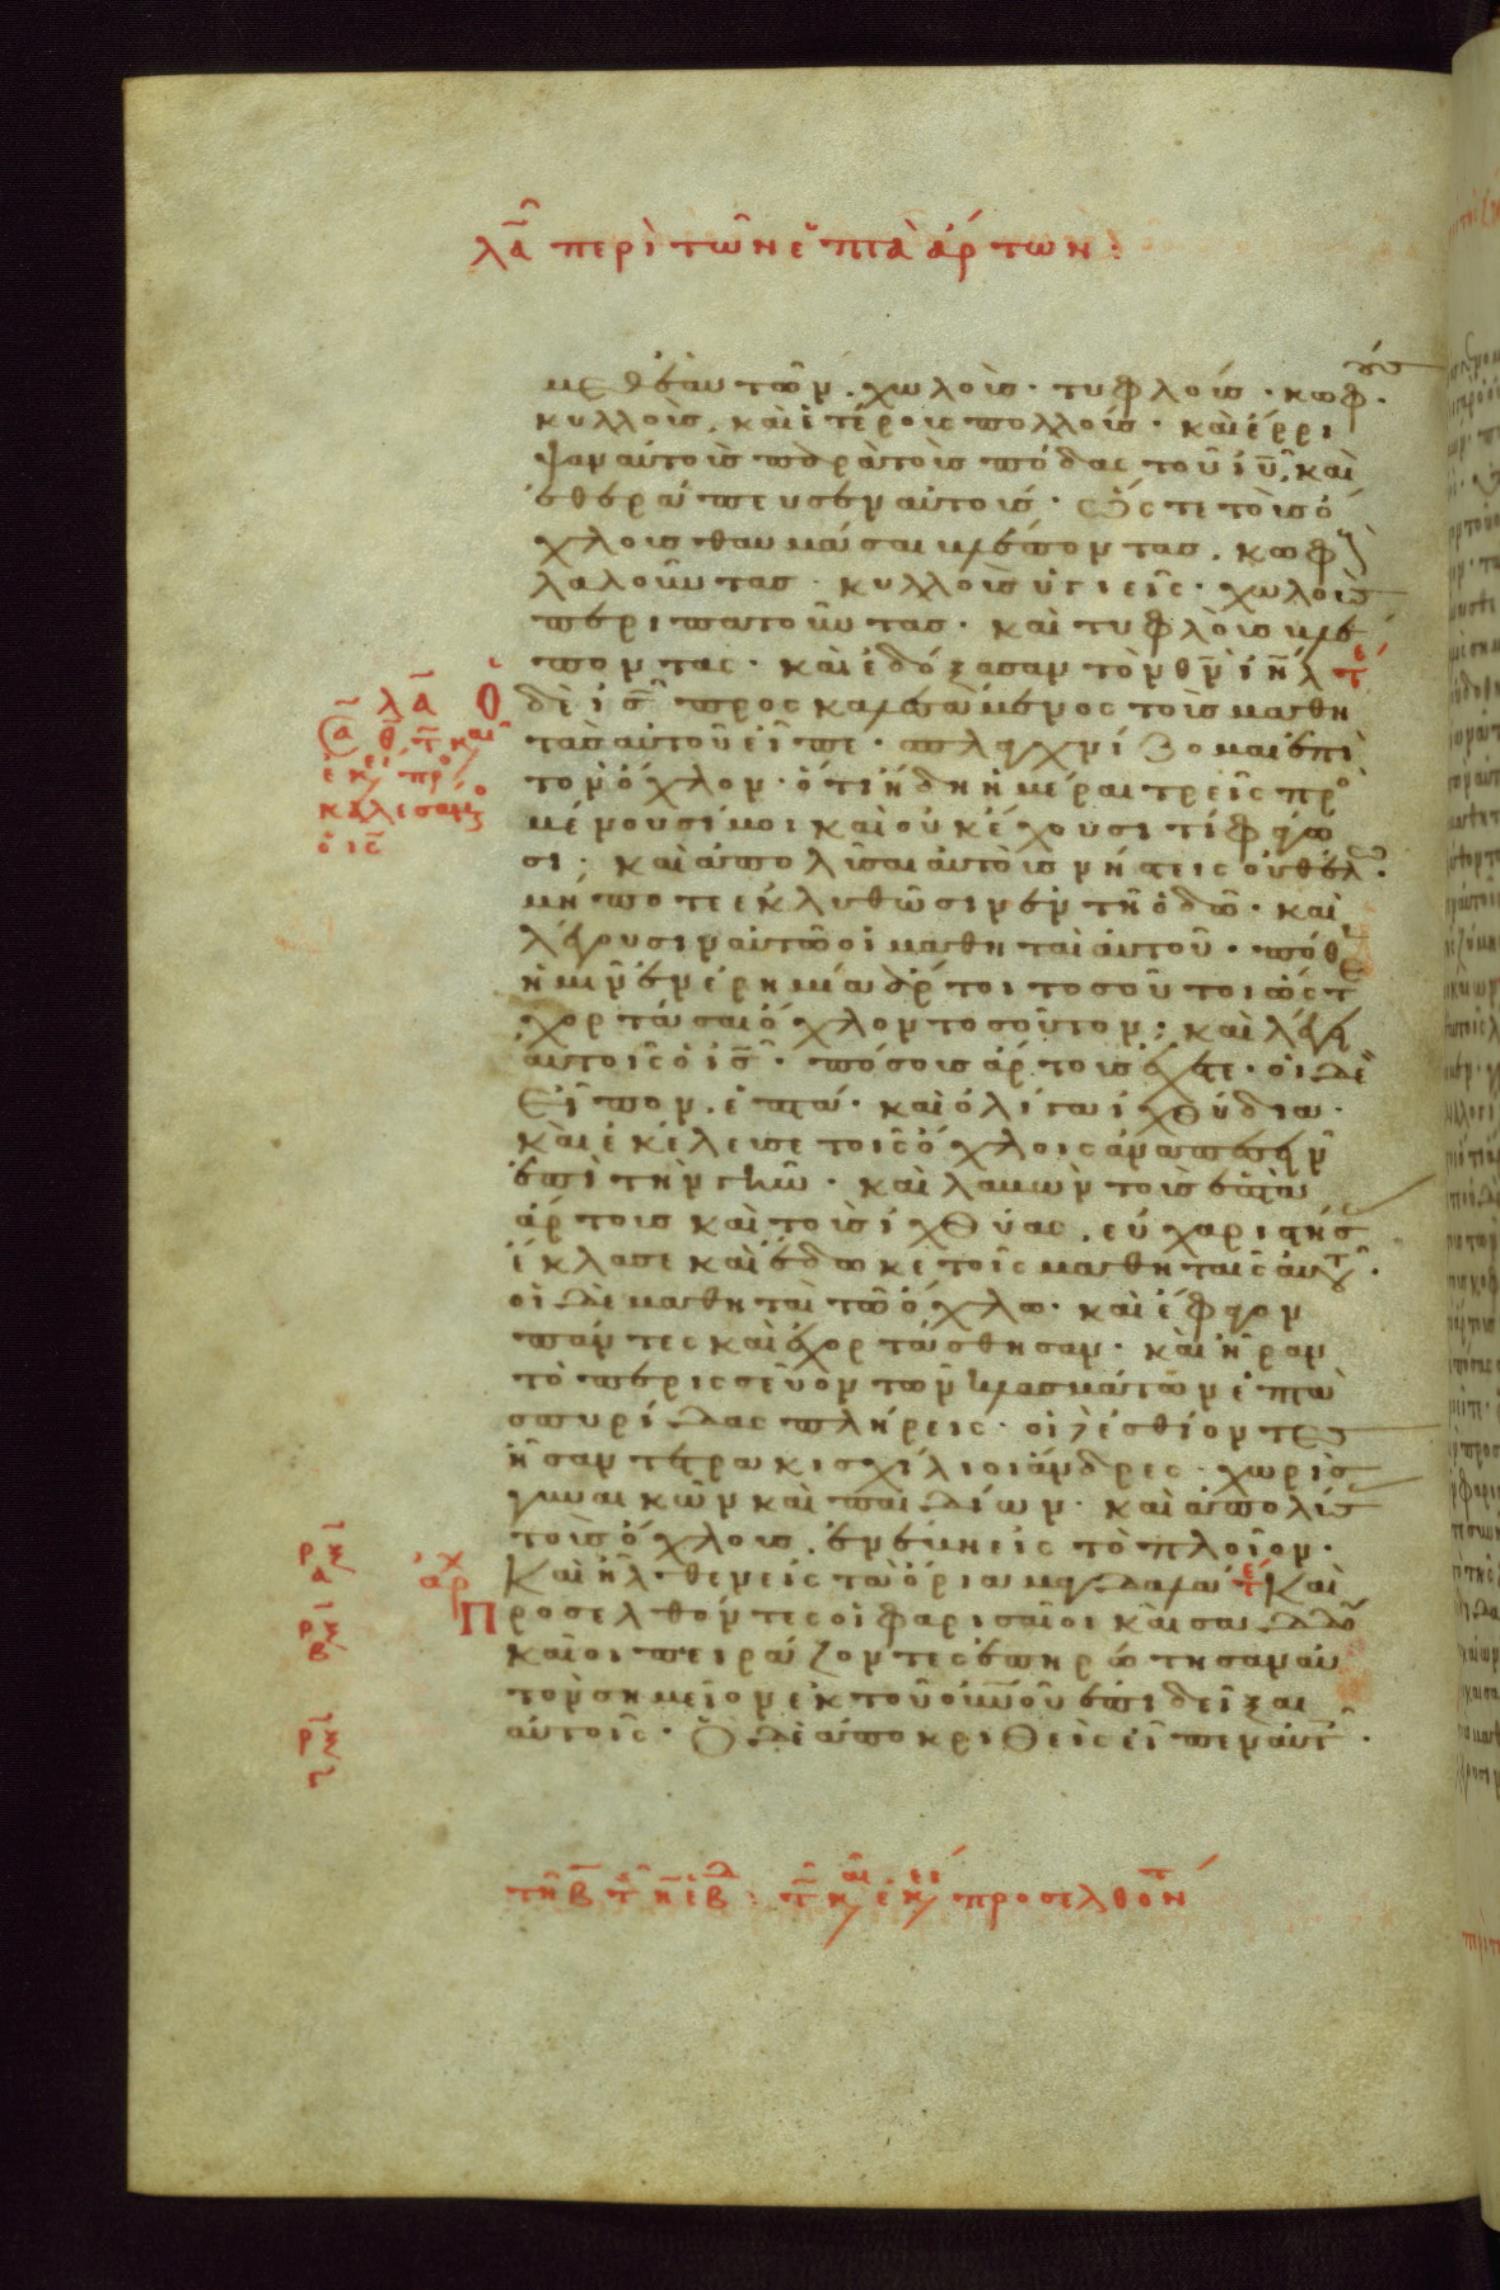 λα περὶ τῶν ἑπτὰ ἄρτων:
μεθ ἑαυτῶν. χωλοὺσ· τυφλούσ· κωφούσ·
κυλλοὺσ. καὶ ἑτέρους πολλούσ· καὶ έρρι
ψαν αὐτοὺσ παρὰ τοὺσ πόδας τοῦ ιυ. καὶ
ἐθεράπευσεν αὐτούσ· ὥςτε τοὺσ ό
χλουσ θαυμάσαι βλέποντασ. κωφ
λαλοῦντασ· κυλλοὺσ ὑγιεῖς· χωλοὺσ
περιπατοῦντασ· καὶ τυφλοὺσ βλέ
ποντας· καὶ ἐδόξασαν τὸν θν ιηλ τε
λα
Ο
δὲ ισ προσκαλεσάμενος τοὺσ μαθη
τὰσ αὐτοῦ εἶπε· σπλαγχνίζομαι ἐπὶ
τὸν ὄχλον· ὅτι ἤδη ἡμέραι τρεῖς προσ
μένουσί μοι καὶ οὐκ ἔχουσι τί φάγω
σι· καὶ ἀπολῦσαι αὐτοὺσ νήστεις οὐ θέλω·
μήποτε ἐκλυθῶσιν ἐν τῆ ὁδῶ· καὶ
λέγουσιν αὐτῶ οἱ μαθηταὶ αὐτοῦ· πόθε
ἡμῖν ἐν ἐρημία ἄρτοι τοσοῦτοι ὥςτ
χορτάσαι ὄχλον τοσοῦτον; καὶ λέγει
αὐτοῖς ὁ ισ· πόσουσ ἄρτουσ ἔχετε· οἱ δὲ
Εἶπον. ἑπτά· καὶ ὀλίγα ἰχθύδια·
καὶ ἐκέλευσε τοῖς ὄχλοις ἀναπεσεῖν
ἐπὶ τὴν γῆν· καὶ λαβὼν τοὺσ ἑπτὰ
ἄρτουσ καὶ τοὺσ ἰχθύας. εὐχαριστήσ
ἔκλασε καὶ ἔδωκε τοῖς μαθηταῖς αὐτοῦ·
οἱ δὲ μαθηταὶ τῶ ὄχλω· καὶ ἔφαγον
πάντες καὶ ἐχορτάσθησαν· καὶ ἦραν
τὸ περισσεῦον τῶν κλασμάτων ἑπτὰ
σπυρίδας πλήρεις· οἱ δὲ ἐσθίοντες
ἦσαν τετρακισχίλιοι ἄνδρες· χωρὶσ
γυναικῶν καὶ παιδίων· καὶ ἀπολύσ
τοὺσ ὄχλουσ. ἐνέβη εἰς τὸ πλοῖον·
ρξ
α
αρχ
Καὶ ἦλθεν εἰς τὰ ὅρια μαγδαλά τε Καὶ
ρξ
β
Π
ροσελθόντες οἱ φαρισαῖοι καὶ σαδδου
καῖοι πειράζοντες ἐπηρώτησαν αὐ
τὸν σημεῖον ἐκ τοῦ οὐνοῦ ἐπιδεῖξαι
ρξ
γ
αὐτοῖς· Ὁ δὲ ἀποκριθεὶς εἶπεν αὐτ·